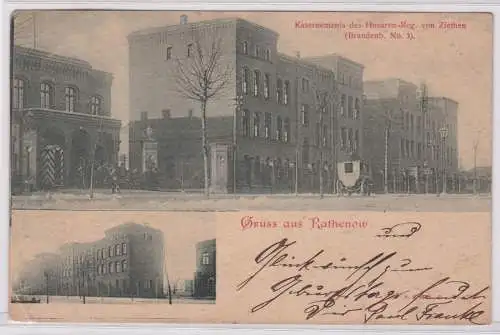 Kasernements des Husaren-Reg. von Ziethen
(Brandenb. No. 3).
Gruss aus Rathenow
und
Glückwunsch zum
Geburtstage sendet
Paul